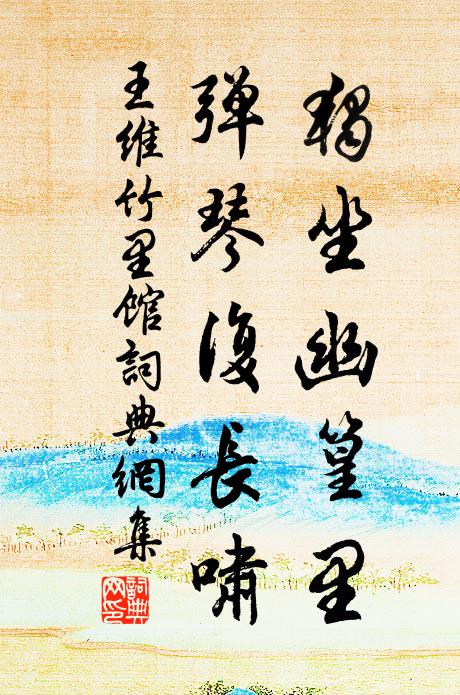 獨坐幽篁里
彈琴復長嘯
王維竹里館詞典網集
詞典